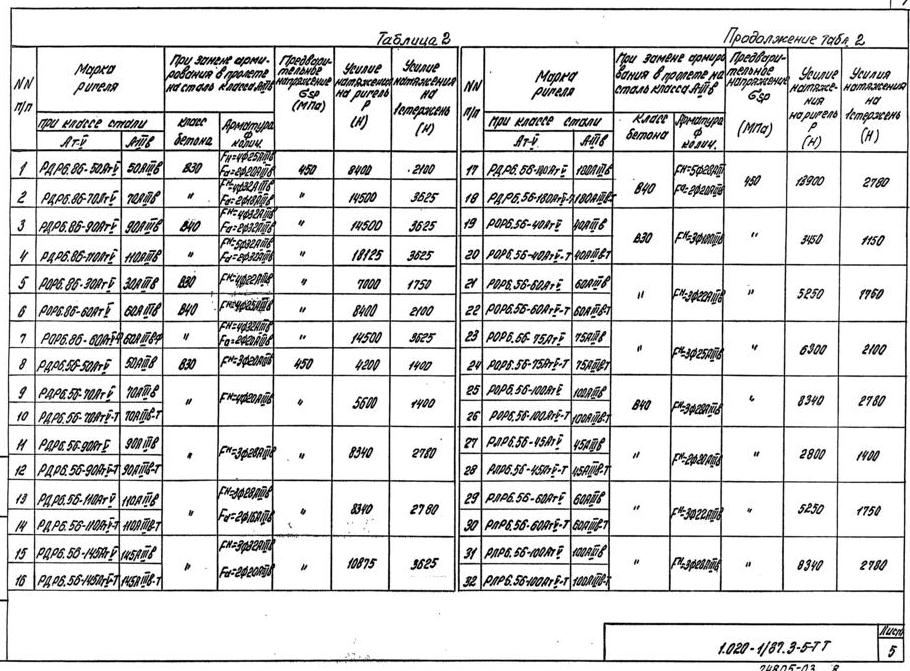 Таблица 2
NN п/п | Марка ригеля при классе стали Ат-V | А-IIIв | При замене армирования в пролете на сталь класса А-IIIв: класс бетона | Арматура Ф колич. | Предварительное напряжение σsp (МПа) | Усилие натяжения на ригель Р (Н) | Усилие натяжения на 1 стержень (Н)
1 | РДР6.86-50АтV | 50АIIIв | В30 | Fн=4ф25АIIIв Fв=2ф20АIIIв | 450 | 8400 | 2100
2 | РДР6.86-70АтV | 70АIIIв | " | Fн=4ф32АIIIв | " | 14500 | 3625
3 | РДР6.86-90АтV | 90АIIIв | В40 | Fн=4ф32АIIIв | " | 14500 | 3625
4 | РДР6.86-110АтV | 110АIIIв | " | Fн=5ф32АIIIв | " | 18125 | 3625
5 | РОР6.86-30АтV | 30АIIIв | В30 | Fн=4ф22АIIIв | " | 7000 | 1750
6 | РОР6.86-60АтV | 60АIIIв | В40 | Fн=4ф25АIIIв | " | 8400 | 2100
7 | РОР6.86-60АтV | 60АIIIв | " | Fн=4ф32АIIIв Fв=2ф20АIIIв | " | 14500 | 3625
8 | РДР6.56-50АтV | 50АIIIв | В30 | Fн=3ф20АIIIв | 450 | 4200 | 1400
9 | РДР6.56-70АтV | 70АIIIв | " | Fн=4ф20АIIIв | " | 5600 | 1400
10 | РДР6.56-70АтV-Т | 70АIIIв-Т
11 | РДР6.56-90АтV | 90АIIIв | " | Fн=3ф28АIIIв | " | 8340 | 2780
12 | РДР6.56-90АтV-Т | 90АIIIв-Т
13 | РДР6.56-110АтV | 110АIIIв | " | Fн=3ф28АIIIв Fв=2ф16АIIIв | " | 8340 | 2780
14 | РДР6.56-110АтV-Т | 110АIIIв-Т
15 | РДР6.56-145АтV | 145АIIIв | " | Fн=3ф32АIIIв Fв=2ф20АIIIв | " | 10875 | 3625
16 | РДР6.56-145АтV-Т | 145АIIIв-Т
Продолжение табл. 2
NN п/п | Марка ригеля при классе стали Ат-V | А-IIIв | При замене армирования в пролете на сталь класса А-IIIв: Класс бетона | Арматура Ф колич. | Предварительное напряжение σsp (МПа) | Усилие натяжения на ригель Р (Н) | Усилия натяжения на 1 стержень (Н)
17 | РДР6.56-180АтV | 180АIIIв | В40 | Fн=5ф28АIIIв Fв=2ф20АIIIв | 450 | 13900 | 2780
18 | РДР6.56-180АтV-Т | 180АIIIв-Т
19 | РОР6.56-40АтV | 40АIIIв | В30 | Fн=3ф18АIIIв | " | 3450 | 1150
20 | РОР6.56-40АтV-Т | 40АIIIв-Т
21 | РОР6.56-60АтV | 60АIIIв | " | Fн=3ф22АIIIв | " | 5250 | 1750
22 | РОР6.56-60АтV-Т | 60АIIIв-Т
23 | РОР6.56-75АтV | 75АIIIв | " | Fн=3ф25АIIIв | " | 6300 | 2100
24 | РОР6.56-75АтV-Т | 75АIIIв-Т
25 | РОР6.56-100АтV | 100АIIIв | В40 | Fн=3ф28АIIIв | " | 8340 | 2780
26 | РОР6.56-100АтV-Т | 100АIIIв-Т
27 | РЛР6.56-45АтV | 45АIIIв | " | Fн=2ф20АIIIв | " | 2800 | 1400
28 | РЛР6.56-45АтV-Т | 45АIIIв-Т
29 | РЛР6.56-60АтV | 60АIIIв | " | Fн=3ф22АIIIв | " | 5250 | 1750
30 | РЛР6.56-60АтV-Т | 60АIIIв-Т
31 | РЛР6.56-100АтV | 100АIIIв | " | Fн=3ф28АIIIв | " | 8340 | 2780
32 | РЛР6.56-100АтV-Т | 100АIIIв-Т
1.020-1/87.3-5-ТТ
Лист
5
24805-03 8